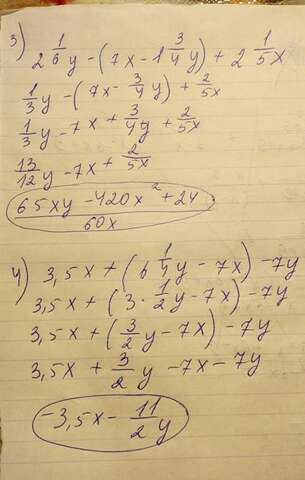 3) 2 1/6 y - (7x - 1 3/4 y) + 2 1/5x
1/3 y - (7x - 3/4 y) + 2/5x
1/3 y - 7x + 3/4 y + 2/5x
13/12 y - 7x + 2/5x
65xy - 420x² + 24 / 60x
4) 3,5x + (6 1/4 y - 7x) - 7y
3,5x + (3 · 1/2 y - 7x) - 7y
3,5x + (3/2 y - 7x) - 7y
3,5x + 3/2 y - 7x - 7y
-3,5x - 11/2 y